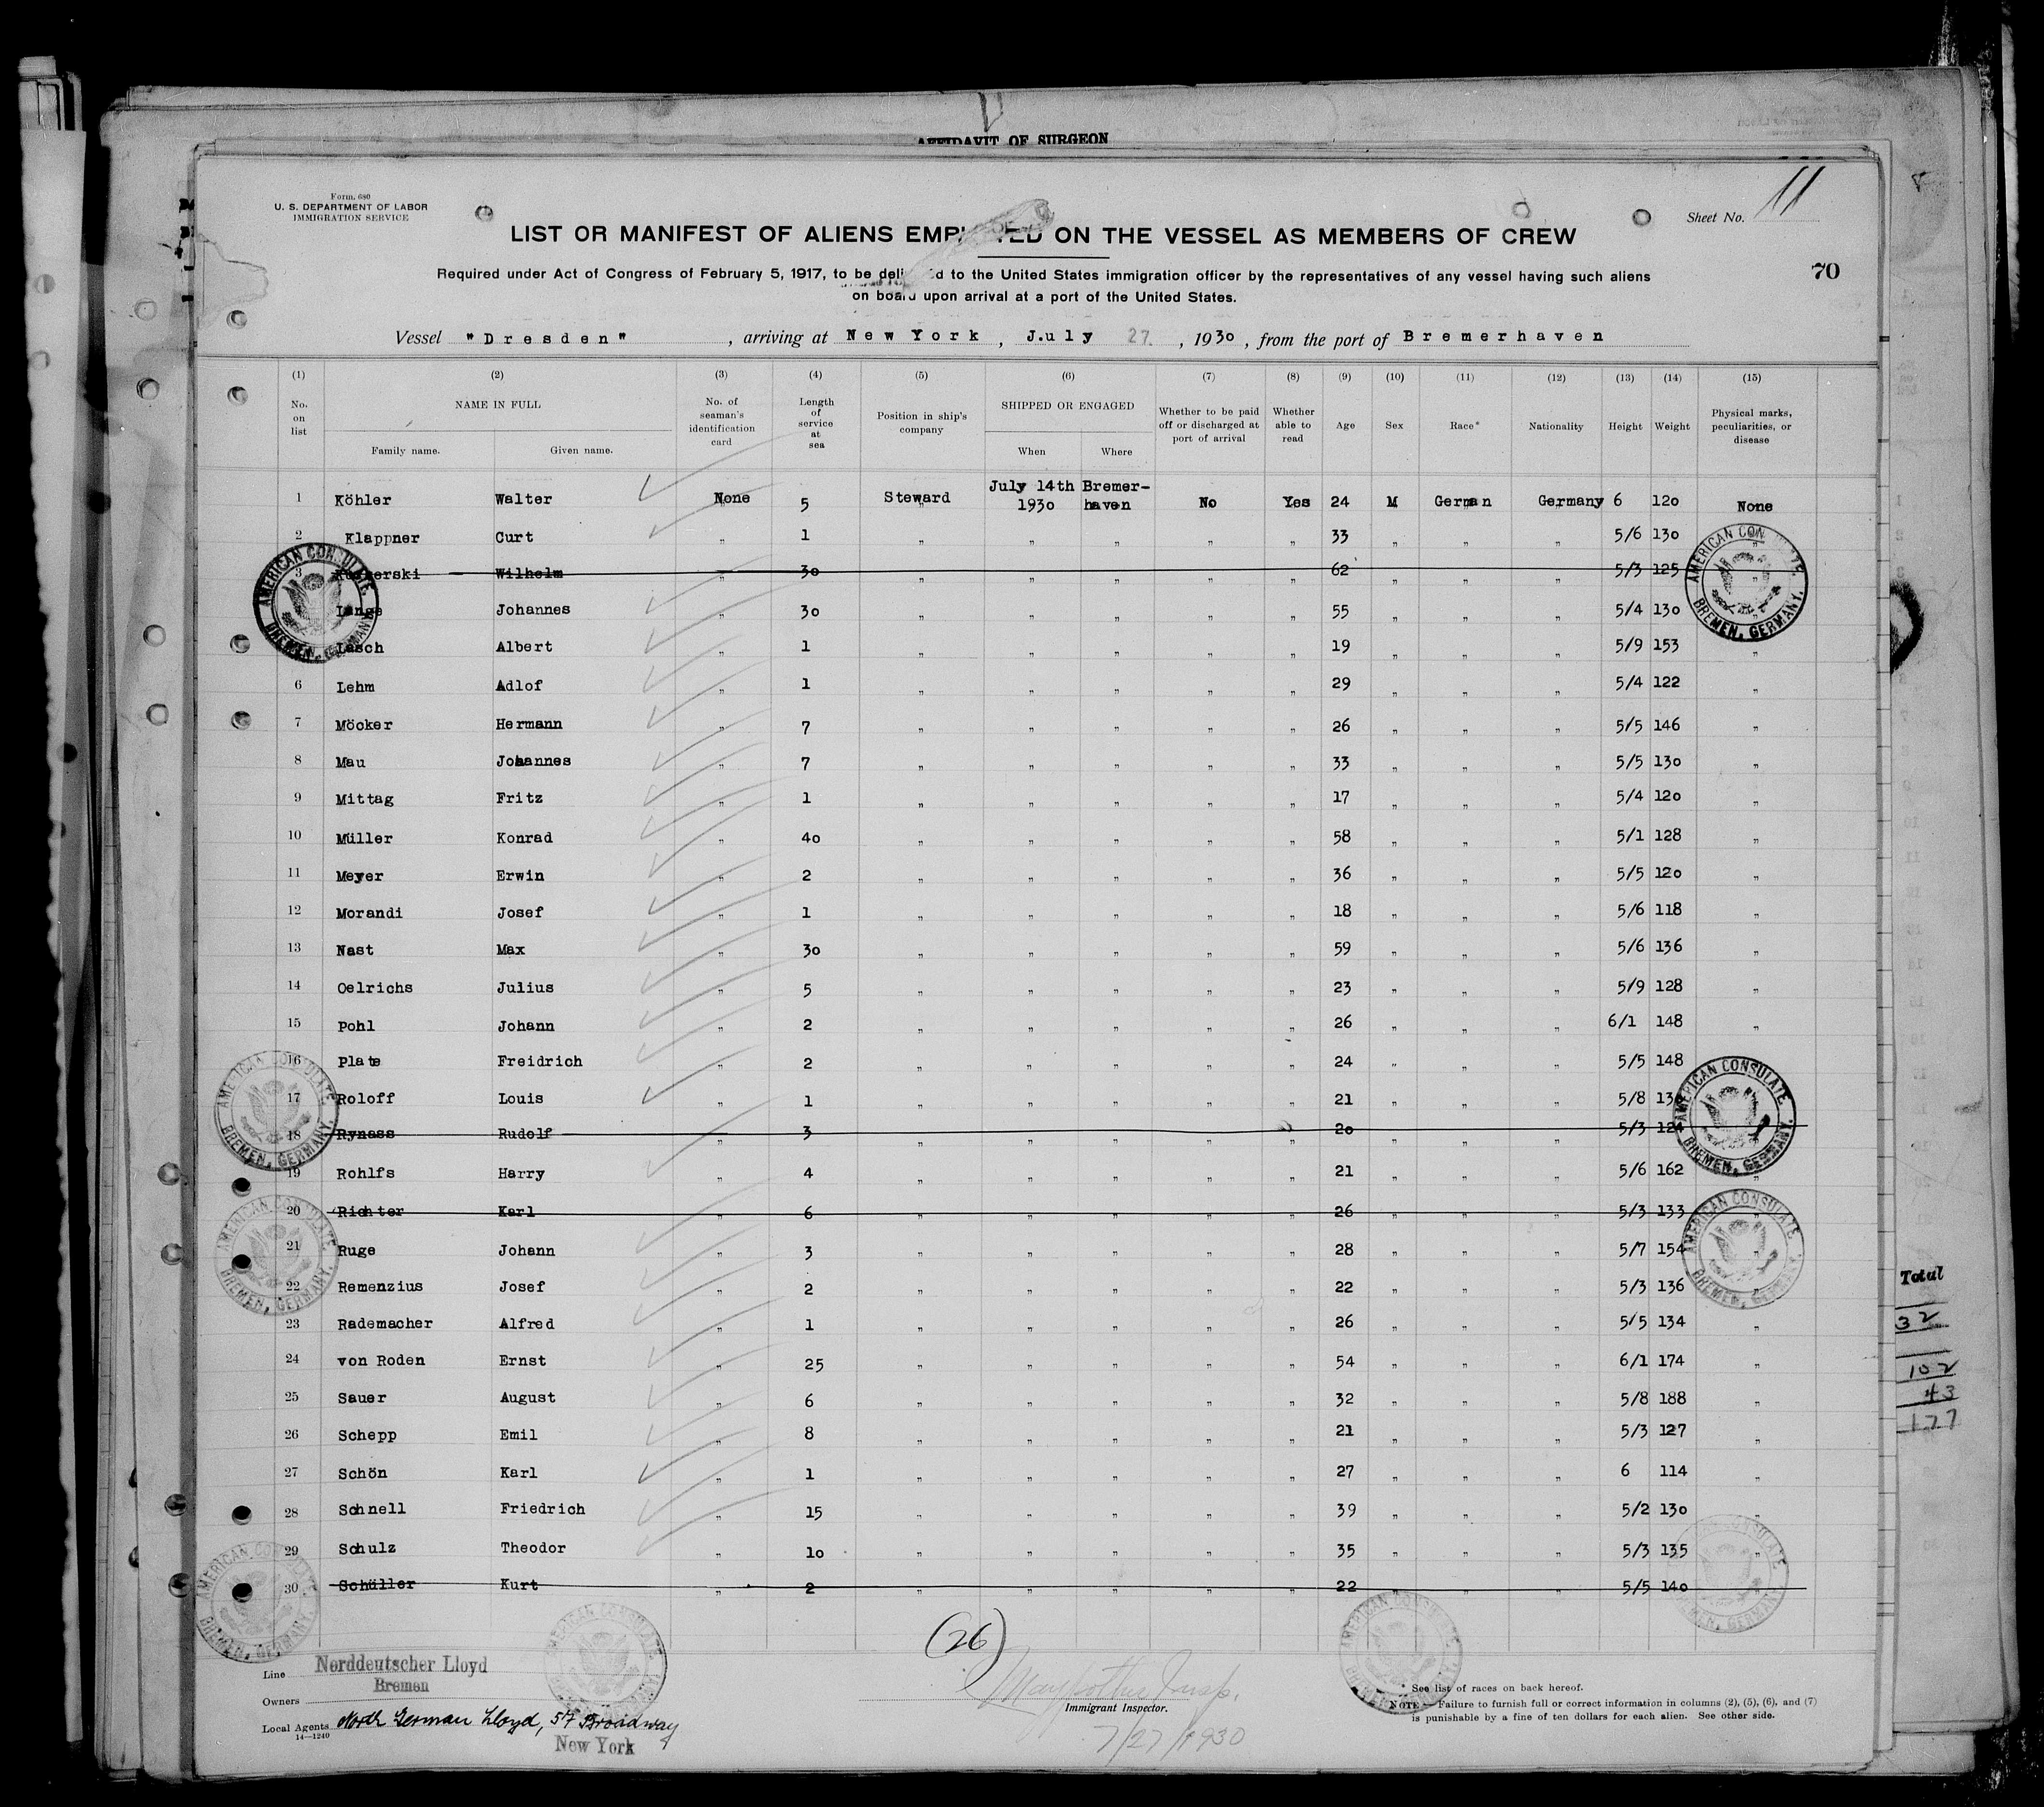 AFFIDAVIT OF SURGEON
Form 680
U. S. DEPARTMENT OF LABOR
IMMIGRATION SERVICE
Sheet No. 11
LIST OR MANIFEST OF ALIENS EMPLOYED ON THE VESSEL AS MEMBERS OF CREW
Required under Act of Congress of February 5, 1917, to be delivered to the United States immigration officer by the representatives of any vessel having such aliens
on board upon arrival at a port of the United States.
70
Vessel "Dresden", arriving at New York, July 27, 1930, from the port of Bremerhaven
(1) (2) (3) (4) (5) (6) (7) (8) (9) (10) (11) (12) (13) (14) (15)
No. on list NAME IN FULL Family name. Given name. No. of seaman's identification card Length of service at sea Position in ship's company SHIPPED OR ENGAGED When Where Whether to be paid off or discharged at port of arrival Whether able to read Age Sex Race* Nationality Height Weight Physical marks, peculiarities, or disease
1 Köhler Walter None 5 Steward July 14th 1930 Bremer-haven No Yes 24 M German Germany 6 120 None 1
2 Klappner Curt " 1 " " " " " 33 " " " 5/6 130 "
3 Wilhelm " 30 " " " " " 62 " " " 5/3 125 "
Lange Johannes " 30 " " " " " 55 " " " 5/4 130
Lasch Albert " 1 " " " " " 19 " " " 5/9 153 "
6 Lehm Adlof " 1 " " " " " 29 " " " 5/4 122 "
7 Möcker Hermann " 7 " " " " " 26 " " " 5/5 146 "
8 Mau Johannes " 7 " " " " " 33 " " " 5/5 130 "
9 Mittag Fritz " 1 " " " " " 17 " " " 5/4 120 "
10 Müller Konrad " 40 " " " " " 58 " " " 5/1 128 "
11 Meyer Erwin " 2 " " " " " 36 " " " 5/5 120 "
12 Morandi Josef " 1 " " " " " 18 " " " 5/6 118 "
13 Nast Max " 30 " " " " " 59 " " " 5/6 136 "
14 Oelrichs Julius " 5 " " " " " 23 " " " 5/9 128 "
15 Pohl Johann " 2 " " " " " 26 " " " 6/1 148 "
16 Plate Freidrich " 2 " " " " " 24 " " " 5/5 148
17 Roloff Louis " 1 " " " " " 21 " " " 5/8
18 Rynass Rudolf " 3 " " " " " 20 " " " 5/3 124
19 Rohlfs Harry " 4 " " " " " 21 " " " 5/6 162 "
20 Richter Karl " 6 " " " " " 26 " " " 5/3 133 "
21 Ruge Johann " 3 " " " " " 28 " " " 5/7 154 "
22 Remenzius Josef " 2 " " " " " 22 " " " 5/3 136 "
23 Rademacher Alfred " 1 " " " " " 26 " " " 5/5 134 "
24 von Roden Ernst " 25 " " " " " 54 " " " 6/1 174 "
25 Sauer August " 6 " " " " " 32 " " " 5/8 188 "
26 Schepp Emil " 8 " " " " " 21 " " " 5/3 127 "
27 Schön Karl " 1 " " " " " 27 " " " 6 114 "
28 Schnell Friedrich " 15 " " " " " 39 " " " 5/2 130 "
29 Schulz Theodor " 10 " " " " " 35 " " " 5/3 135 "
30 Schüller Kurt " 2 " " " " " 22 " " " 5/5 140 "
AMERICAN CONSULATE. BREMEN, GERMANY.
AMERICAN CONSULATE. BREMEN, GERMANY.
AMERICAN CONSULATE. BREMEN, GERMANY.
AMERICAN CONSULATE BREMEN, GERMANY.
AMERICAN CONSULATE. BREMEN, GERMANY.
AMERICAN CONSULATE. BREMEN, GERMANY.
Total
32
102
43
177
(26)
Line Norddeutscher Lloyd
Bremen
Owners
Local Agents North German Lloyd, 57 Broadway
New York
14—1240
Immigrant Inspector.
7/27/1930
* See list of races on back hereof.
NOTE.—Failure to furnish full or correct information in columns (2), (5), (6), and (7)
is punishable by a fine of ten dollars for each alien. See other side.